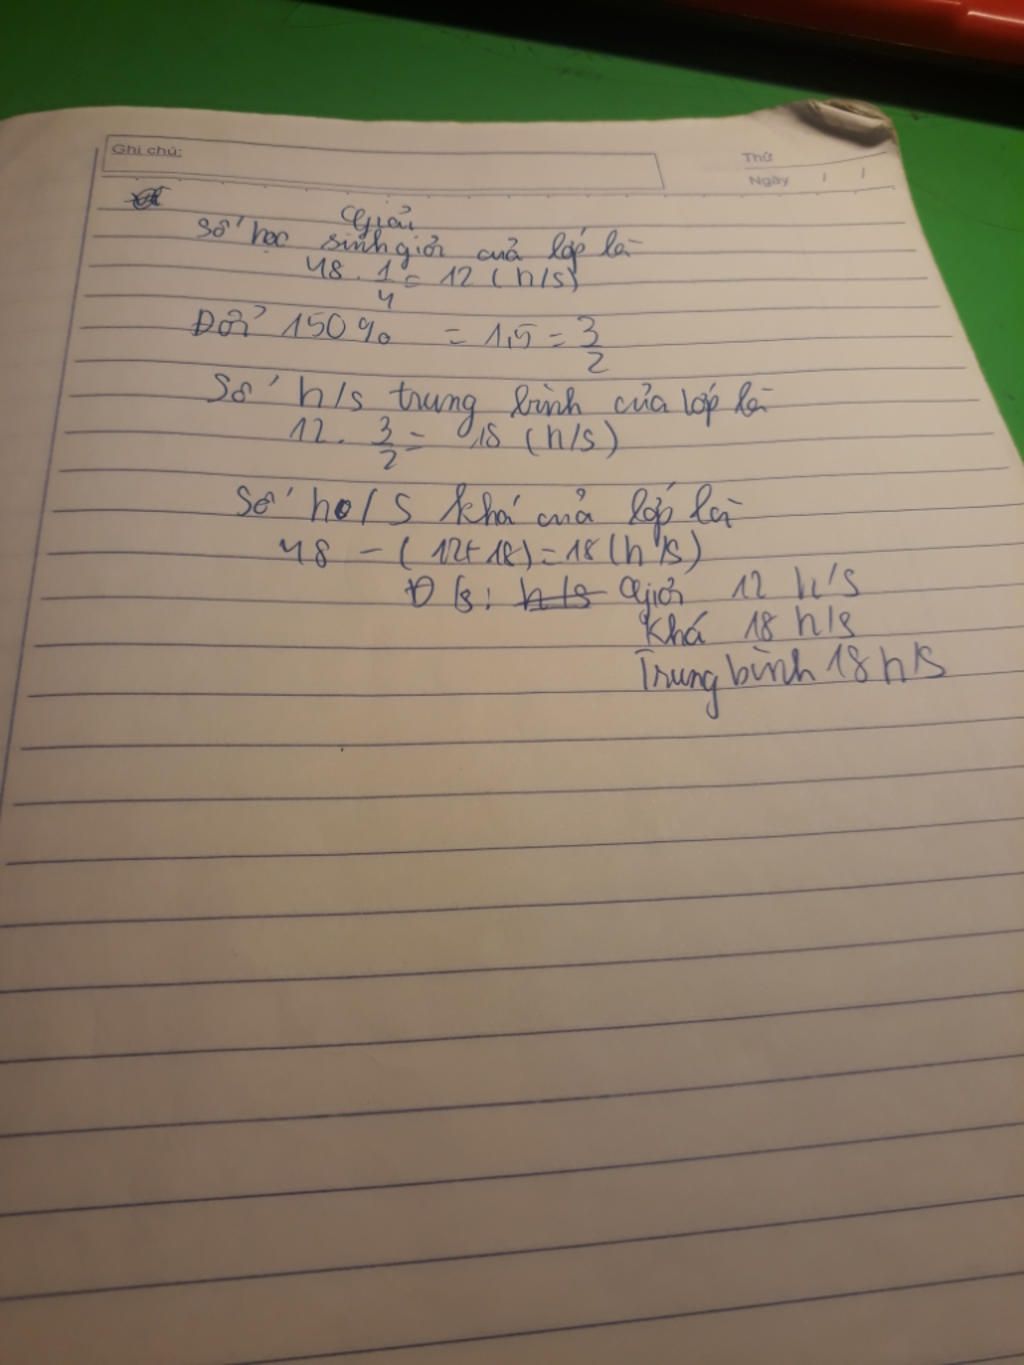 Ghi chú:
Thứ
Ngày / /
Giải
Số học sinh giỏi của lớp là
48 . 1/4 = 12 (h/s)
Đổi 150% = 1,5 = 3/2
Số h/s trung bình của lớp là
12 . 3/2 = 18 (h/s)
Số ho/s khá của lớp là
48 - (12+18) = 18 (h/s)
Đ/s: h/s Giỏi 12 h/s
Khá 18 h/s
Trung bình 18 h/s